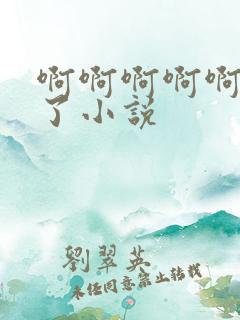 啊啊啊啊啊
了小説
劉翠英
未经同意禁止转载